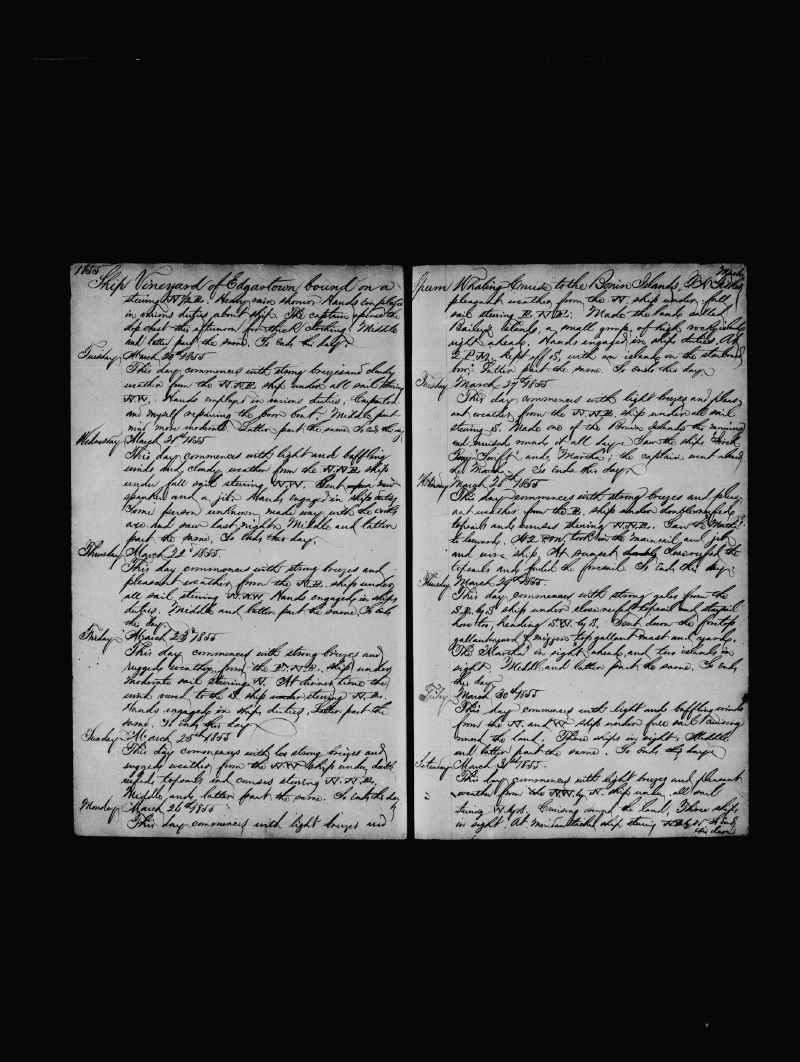 1855
Ship Vineyard of Edgartown bound on a
stering N N 1/2 E. Heavy rain shower Hands employed
in various duties about ship. The captain opened the
slop chest this afternoon for thick clothing. Middle
and latter part the same. So ends the day.
Tuesday March 20th 1855
This day commences with strong breezes and cloudy
weather from the N.N.E. ship under all sail stering
N.W. Hands employed in various duties. Carpenter
and myself repairing the bow boat. Middle part
more moderate. Latter part the same. So ends the day
Wednesday March 21st 1855
This day commences with light and baffling
winds and cloudy weather from the N.N.E. ship
under full sail stering N.W. Bent a new
spanker and a jib. Hands engaged in ships duties.
Some person unknown made way with the cooks
axe and saw last night. Middle and latter
part the same. So ends this day.
Thursday March 22d 1855
This day commences with strong breezes and
pleasant weather from the N.E. ship under
all sail stering N.N.W. Hands engaged in ships
duties. Middle and latter part the same. So ends
the day.
Friday March 23d 1855
This day commences with strong breezes and
rugged weather from the E.N.E. ship under
moderate sail stering N. At dinner time the
wind vared to the S ship under stering N.E.
Hands engaged in ships duties. Latter part the
same. So ends this day
Sunday March 25th 1855
This day commences with strong breezes and
rugged weather from the N.W. ship under double
reefed topsails and courses stering N.N.E.
Middle and latter part the same. So ends the day
Monday March 26th 1855
This day commences with light breezes and
March
Sperm Whaling Cruise to the Bonin Islands,
pleasant weather from the N. ship under full
sail stering E.N.E. Made the lands called
Baileys Islands, a small group of high rocky islands
right ahead. Hands engaged in ship duties. At
2 P.M. kept off S. with an island on the starboard
bow. Latter part the same. So ends the day.
Tuesday March 27th 1855
This day commences with light breezes and pleas
ant weather from the N.N.E. ship under all sail
stering S. Made one of the Bonin Islands this morning
and cruised round it all day. Saw the ships
Swift and Martha, the captain went aboard
the Martha. So ends this day.
March 28th 1855
This day commences with strong breezes and pleas
ant weather from the E. ship under double reefed
topsails and courses stering N.N.E. Saw the Martha
to leeward, At 2 P.M. took in the mainsail and jib
and wore ship, At sunset close reefed the
topsails and furled the foresail. So ends this day.
Thursday March 29th 1855
This day commences with strong gales from the
S.E. by S. ship under close reefed topsails and staysail
hove too, heading S.W. by S. Sent down the foretop
gallantyard & mizzen top gallant mast and yards.
The Martha in sight ahead, and two islands in
sight. Middle and latter part the same. So ends
the day
Friday March 30th 1855
This day commences with light and baffling winds
from the N. and W. ship under full sail Cruising
round the land. Three ships in sight. Middle
and latter part the same. So ends the day
Saturday March 31st 1855
This day commences with light breezes and pleasant
weather from the N.W. by N. ship under all sail
Cruising round the land, Three ships
in sight. At ship stering So ends
this day